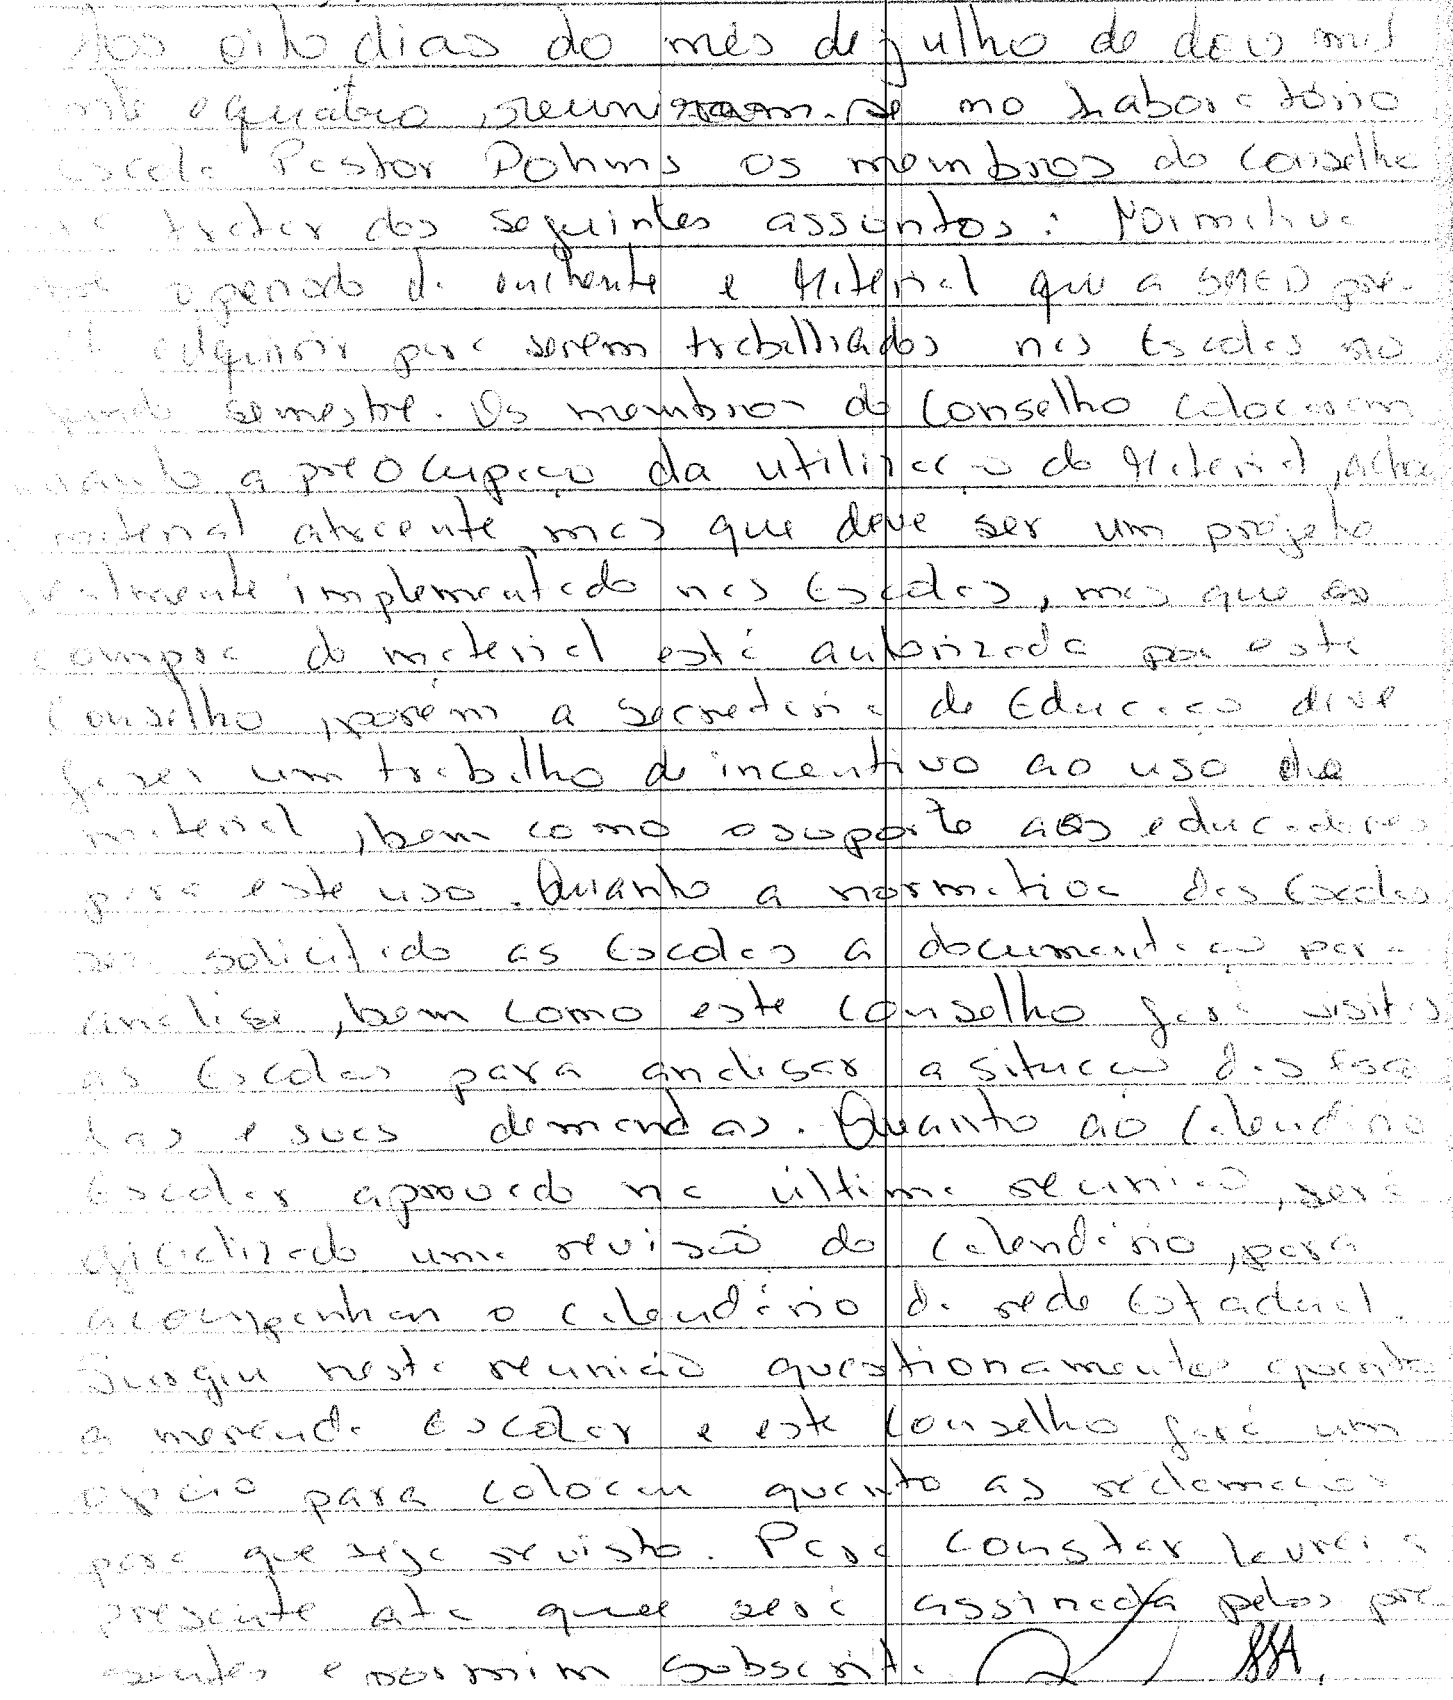 Aos oito dias do mês de julho de dois mil
vinte e quatro, reuniram-se no Laboratório
Escola Pastor Dohms os membros do Conselho
tratar dos seguintes assuntos: Normativa
o período de enchente e Material que a SMED pre-
adquirir para serem trabalhados nas Escolas no
semestre. Os membros do Conselho colocaram
quanto a preocupação da utilização do Material, acha
material atraente mas que deve ser um projeto
realmente implementado nas Escolas, mas que as
compra do material está autorizada por este
Conselho, porém a Secretaria de Educação deve
fazer um trabalho de incentivo ao uso do
material, bem como o suporte aos educadores
para este uso. Quanto a normativa das Escolas
será solicitado as Escolas a documentação para
análise, bem como este Conselho fará visitas
as Escolas para analisar a situação das Esco
las e suas demandas. Quanto ao Calendário
Escolar aprovado na última reunião, será
oficializado uma revisão do Calendário, para
acompanhar o calendário da rede Estadual.
Surgiu nesta reunião questionamentos quanto
a merenda Escolar e este Conselho fará um
ofício para colocar quanto as reclamações
para que seja revisto. Para constar lavrei a
presente ata que será assinada pelos pre-
sentes e por mim subscrita.